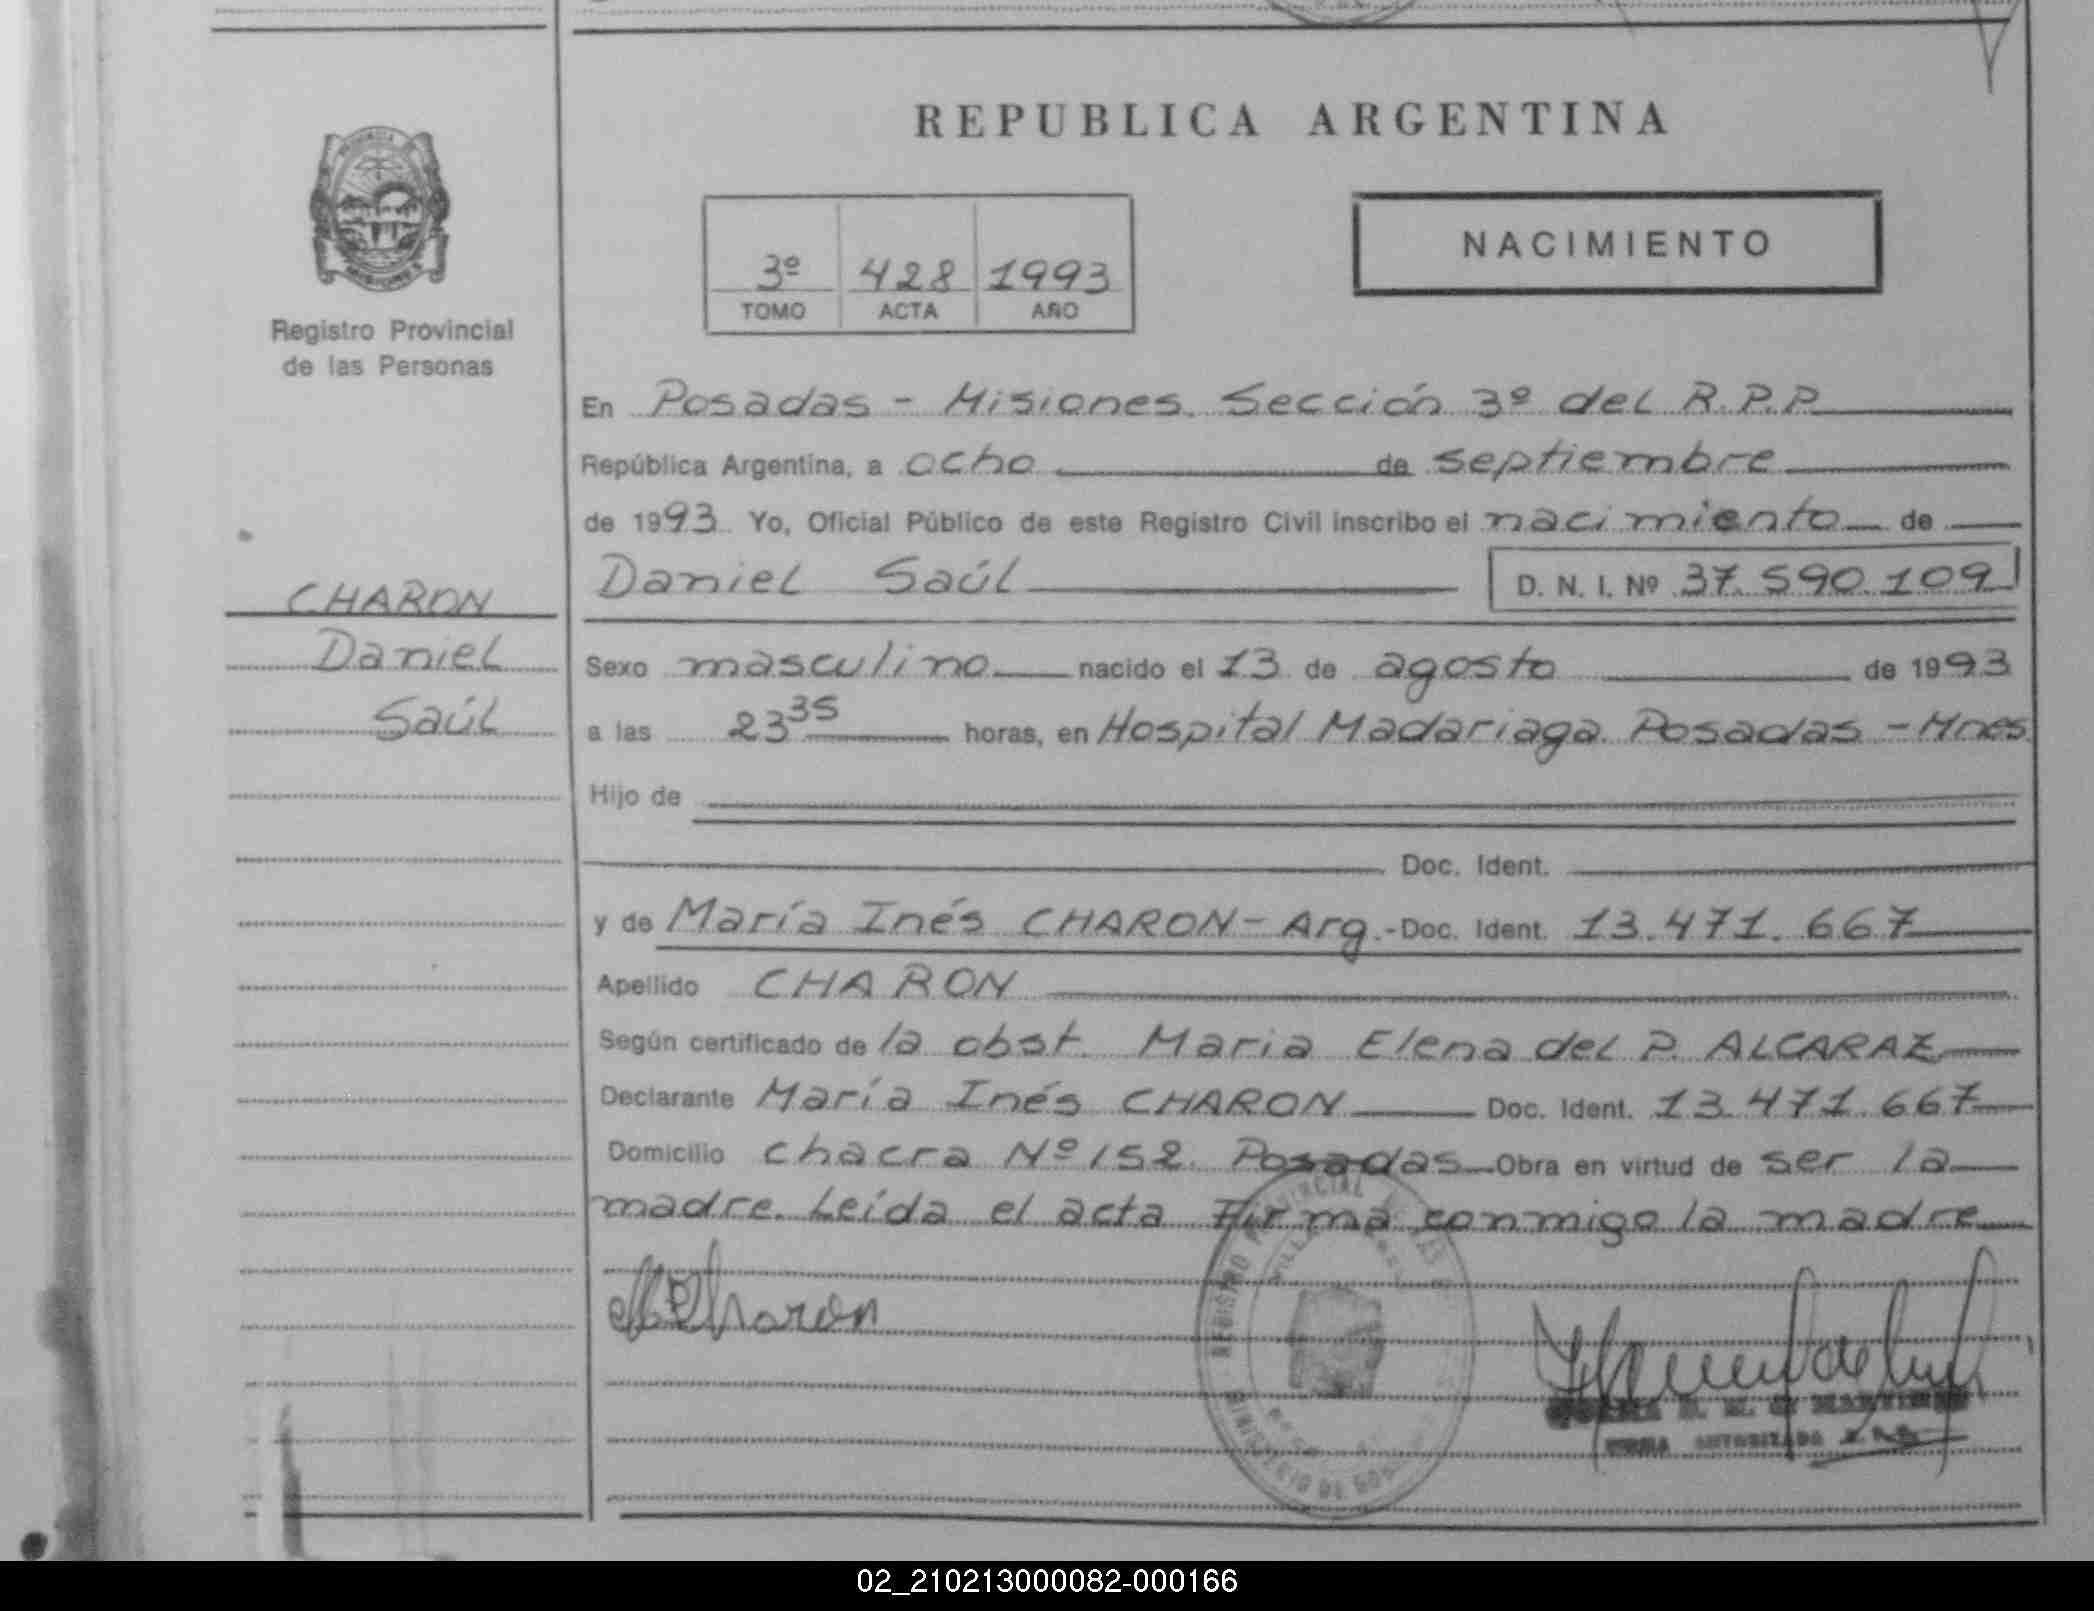 REPUBLICA ARGENTINA
NACIMIENTO
3º 428 1993
TOMO ACTA AÑO
Registro Provincial
de las Personas
CHARON
Daniel
Saúl
En Posadas - Misiones. Sección 3º del R.P.P
República Argentina, a ocho de septiembre
de 1993 Yo, Oficial Público de este Registro Civil inscribo el nacimiento de
Daniel Saúl D. N. I. Nº 37.590.109
Sexo masculino nacido el 13 de agosto de 1993
a las 23 35 horas, en Hospital Madariaga. Posadas - Mnes
Hijo de
Doc. Ident.
y de María Inés CHARON - Arg.- Doc. Ident. 13.471.667
Apellido CHARON
Según certificado de la obst. Maria Elena del P. ALCARAZ
Declarante María Inés CHARON Doc. Ident. 13.471.667
Domicilio chacra Nº 152. Posadas Obra en virtud de ser la
madre. Leída el acta Firma conmigo la madre
REGISTRO PROVINCIAL
MICharon
FIRMA AUTORIZADA
02_210213000082-000166